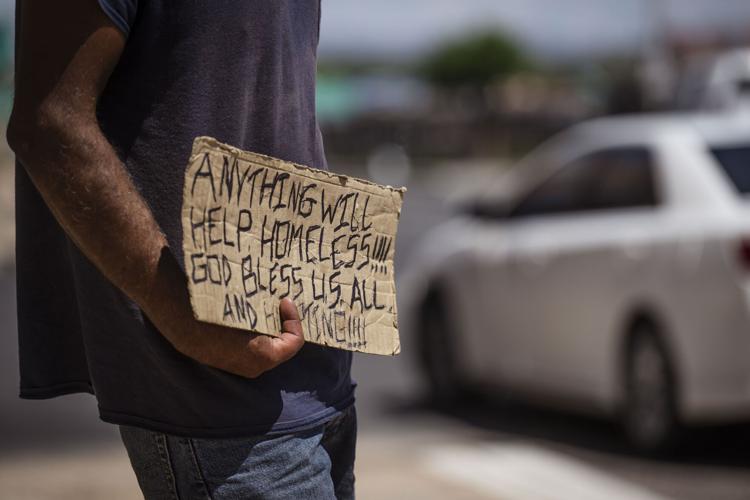 ANYTHING WILL
HELP HOMELESS!!!!
GOD BLESS US. ALL.
AND